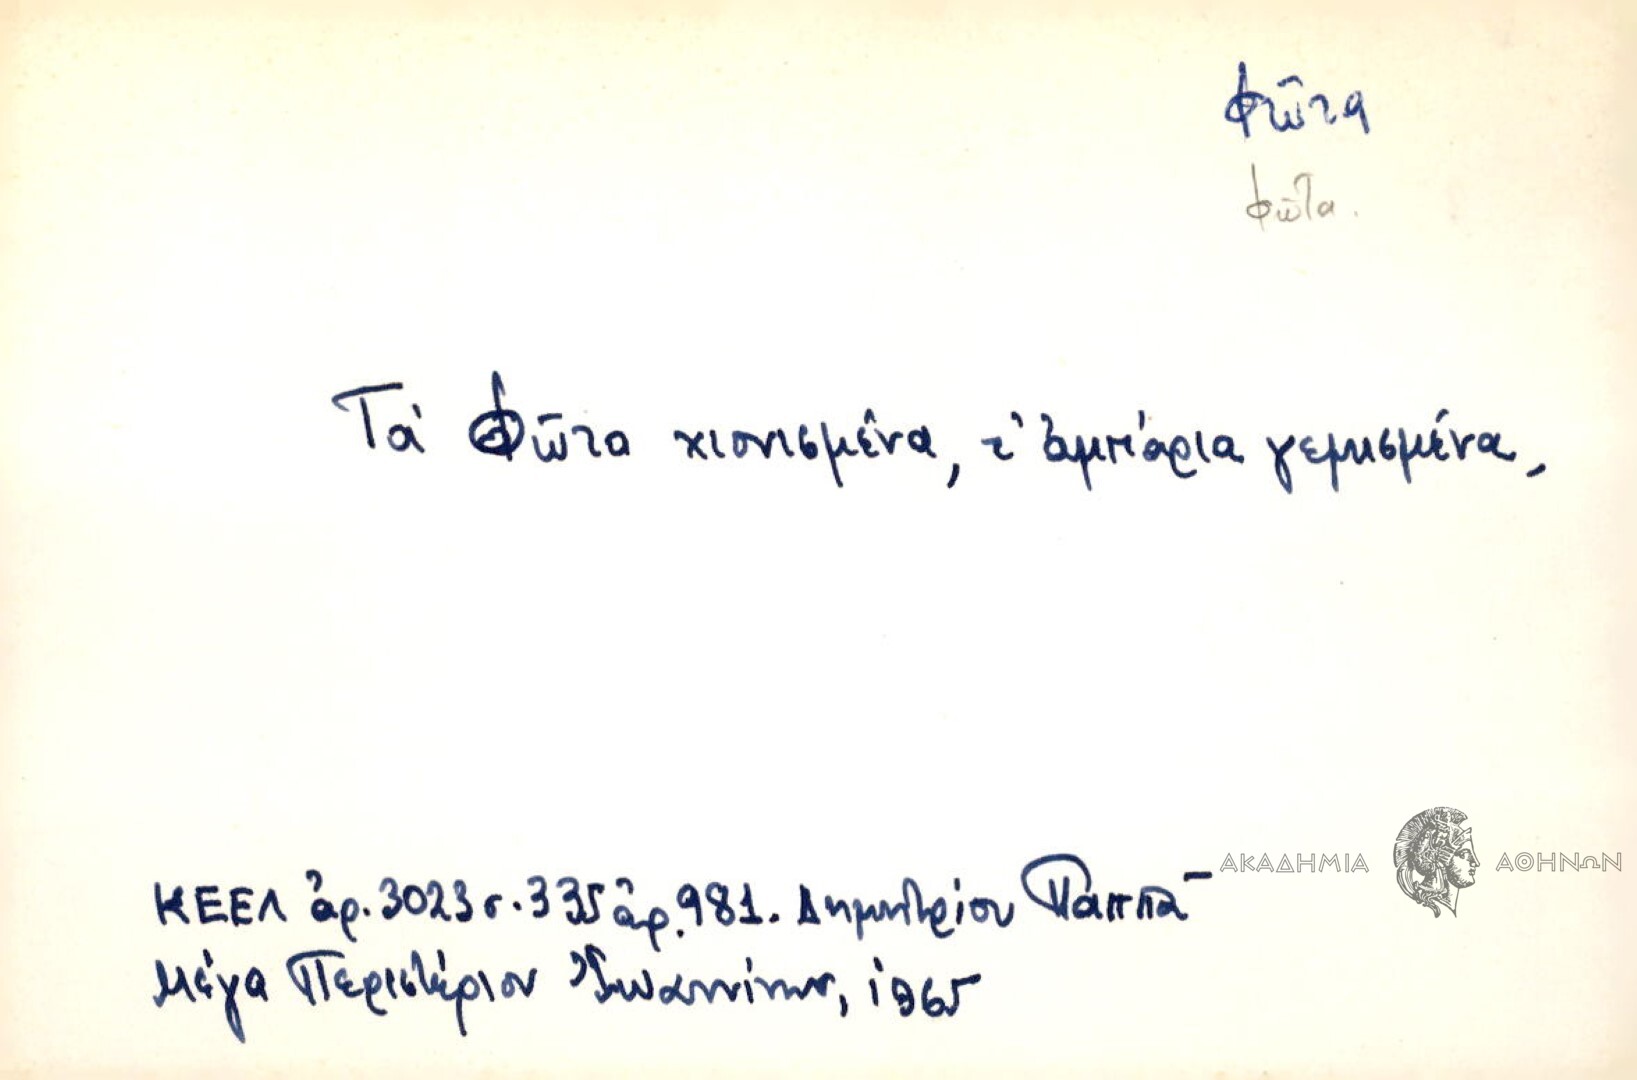 Φῶτα
Φῶτα.
Τὰ Φῶτα χιονισμένα, τ' ἀμπάρια γεμισμένα,
ΑΚΑΔΗΜΙΑ ΑΘΗΝΩΝ
ΚΕΕΛ ἀρ. 3023 σ. 335 ἀρ. 981. Δημητρίου Παππᾶ
Μέγα Περιστέριον Ἰωαννίνων, 1965